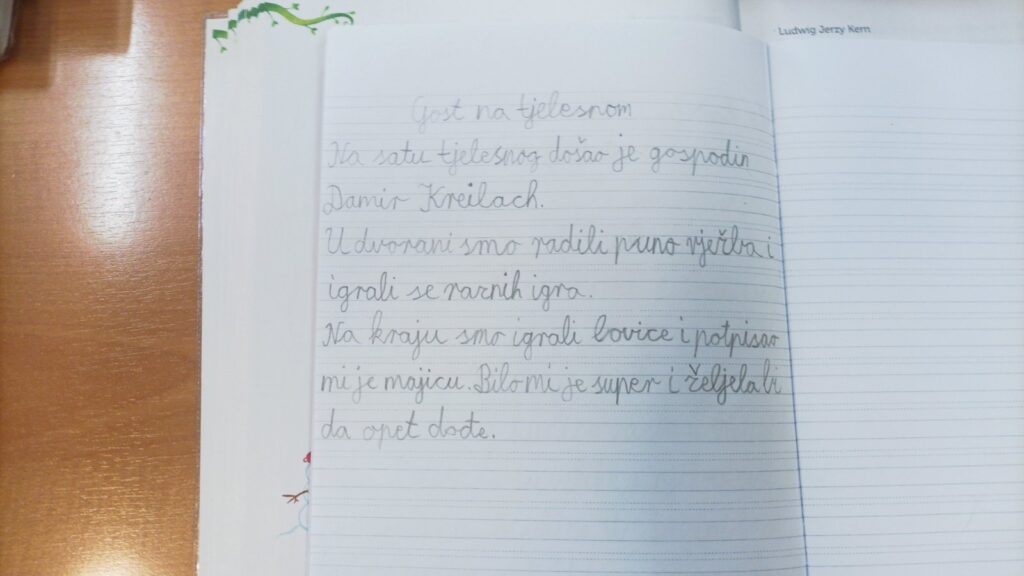 Ludwig Jerzy Kern
Gost na tjelesnom
Na satu tjelesnog došao je gospodin
Damir Kreilach.
U dvorani smo radili puno vježba i
igrali se raznih igra.
Na kraju smo igrali lovice i potpisao
mi je majicu. Bilo mi je super i željela bi
da opet dođe.